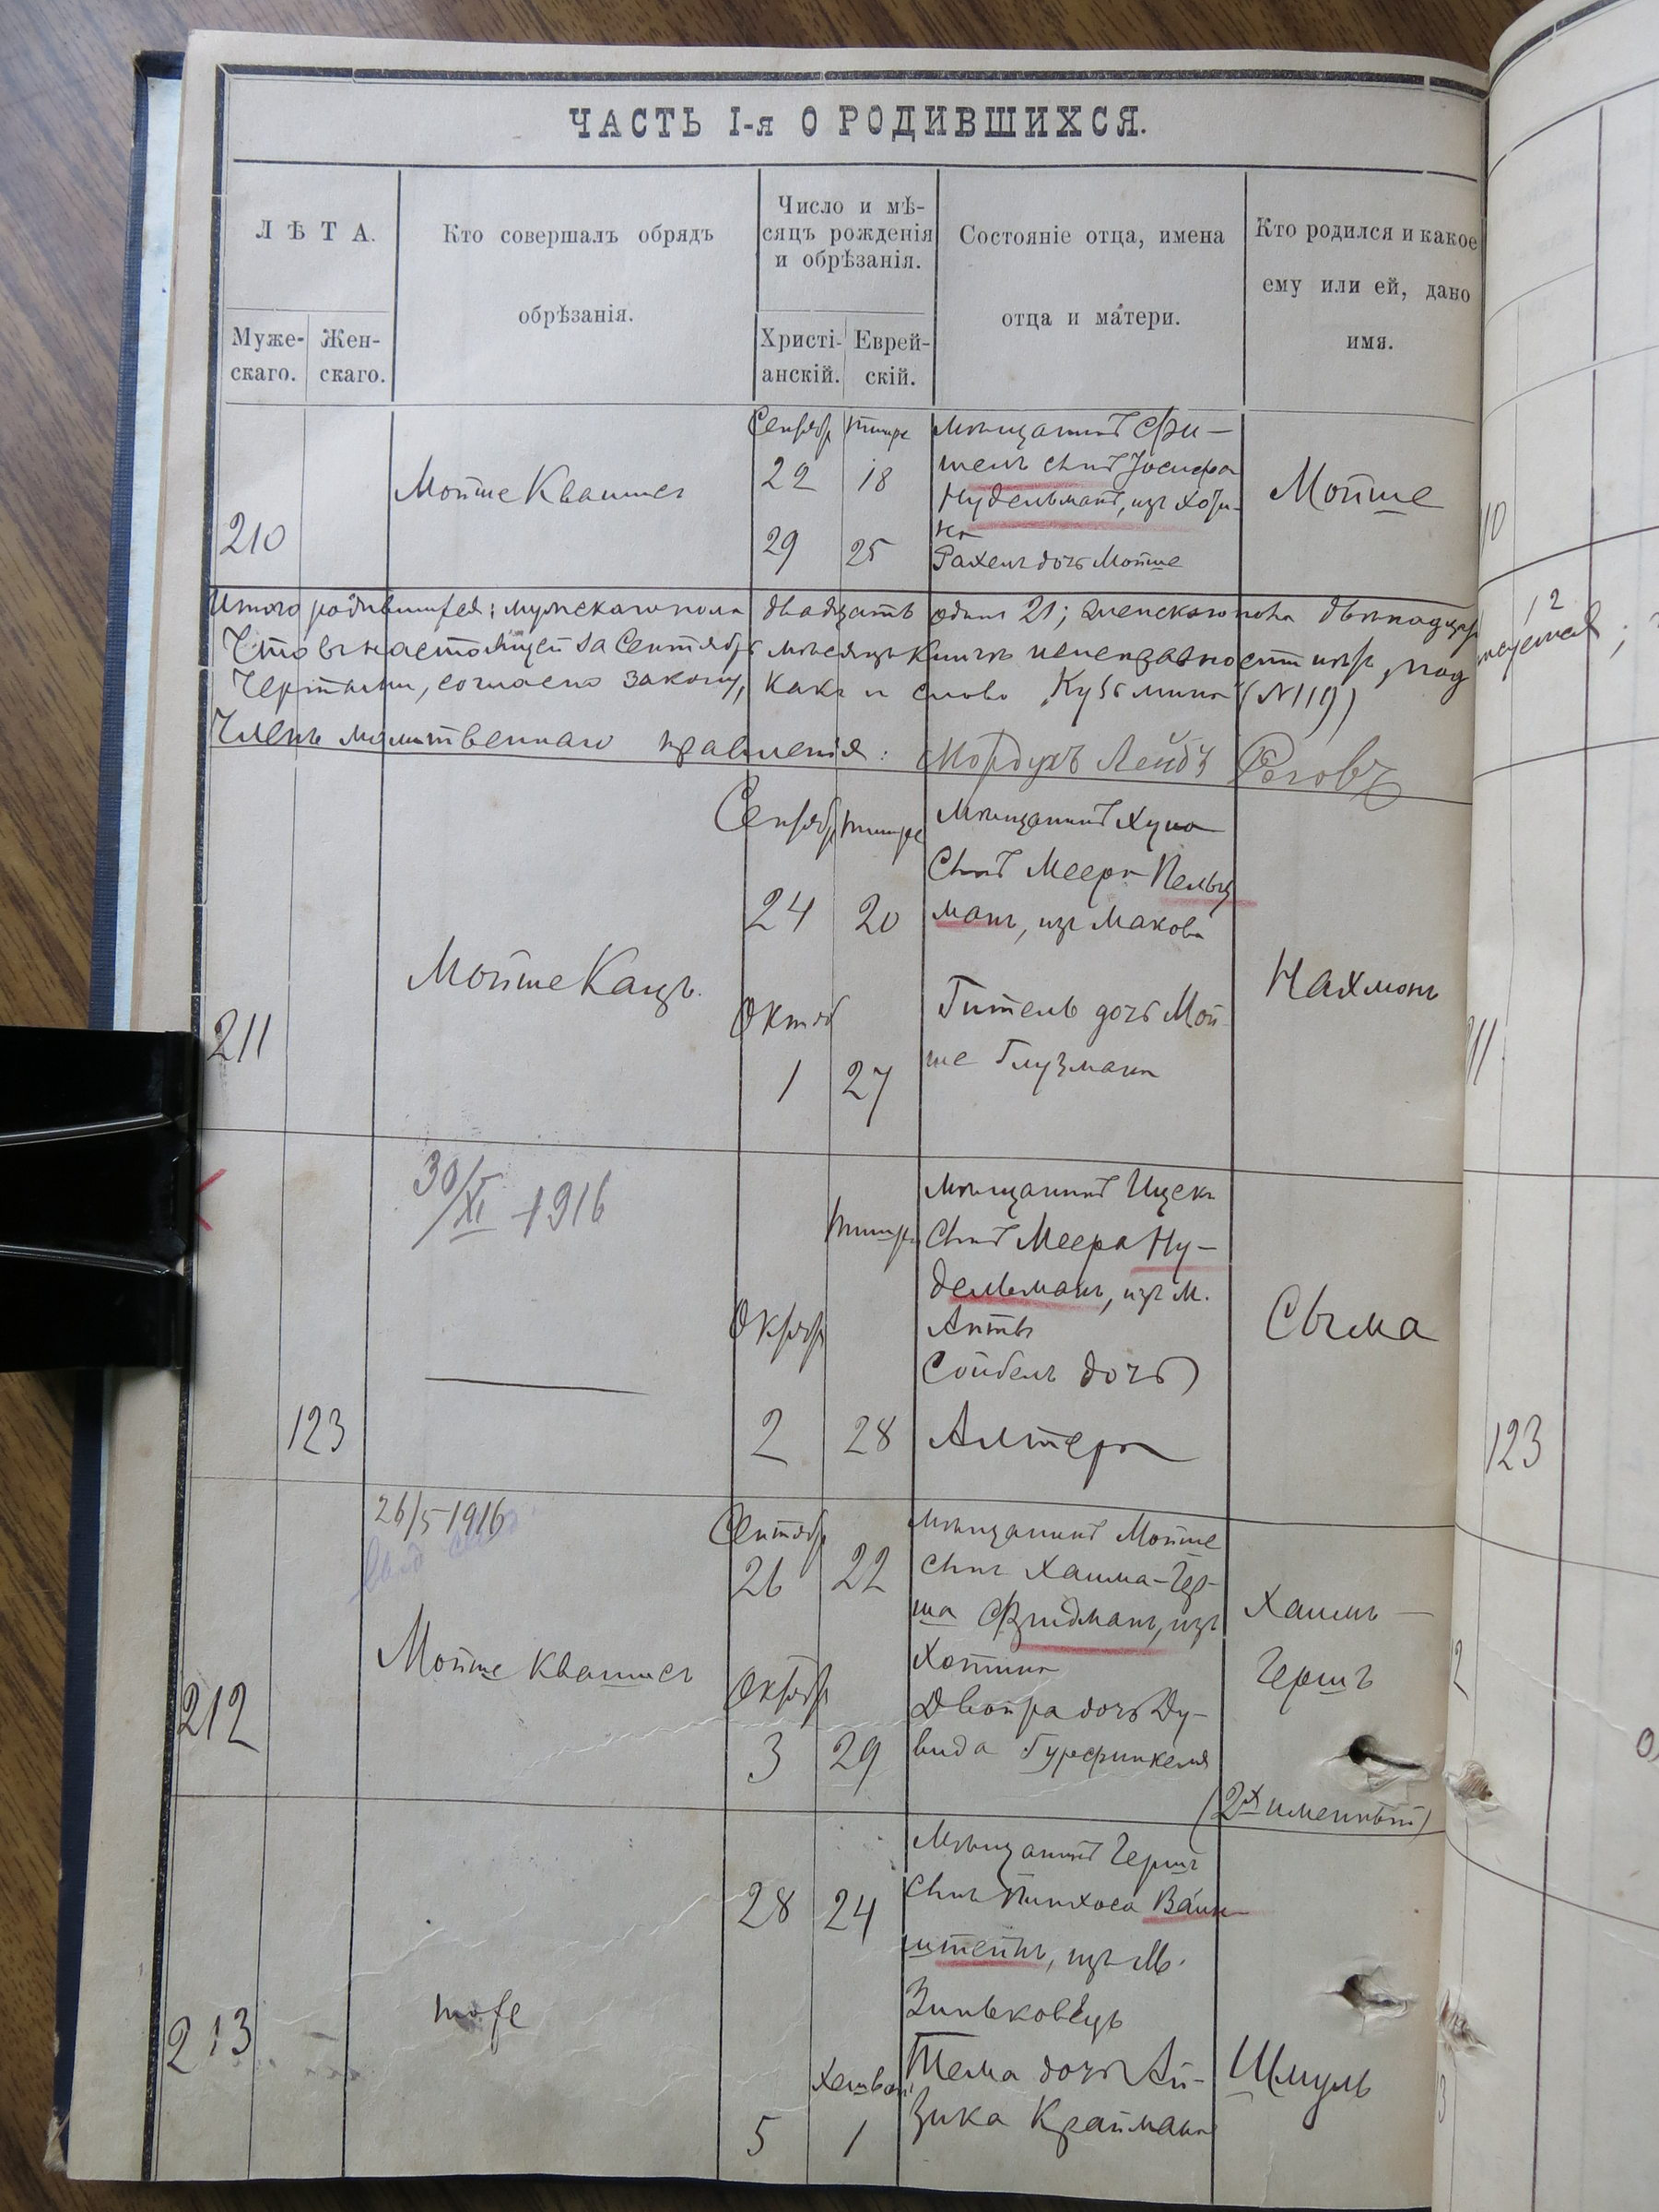 ЧАСТЬ I-я О РОДИВШИХСЯ.
ЛѢТА.
Муже-
скаго.
Жен-
скаго.
Кто совершалъ обрядъ
обрѣзанія.
Число и мѣ-
сяцъ рожденія
и обрѣзанія.
Христі-
анскій.
Еврей-
скій.
Состояніе отца, имена
отца и матери.
Кто родился и какое
ему или ей, дано
имя.
210
Мойше Квашисъ
Сентябр
22
29
Тишре
18
25
Мѣщанинъ Фи-
шель сынъ Іосифа
Нудельманъ, изъ Хоти-
на
Рахель дочь Мойше
Мойше
Итого родившихся: мужескаго пола двадцать одинъ 21; женскаго пола двѣнадцать 12
Что въ настоящей за Сентябрь мѣсяцъ книгѣ неисправности нѣтъ, под
чертами, согласно закону, какъ и слово „Кузьмина" (№119)
Членъ молитвеннаго правленія: Мордухъ Лейбъ Роговъ
211
Мойше Кацъ.
Сентябр
24
Октяб
1
Тишре
20
27
Мѣщанинъ Хуна
сынъ Меера Пельц
манъ, изъ Макова
Гитель дочь Мой-
ше Глузмана
Нахманъ
30/XI 1916
123
Октябр
2
Тишре
28
Мѣщанинъ Ицекъ
сынъ Меера Ну-
дельманъ, изъ м.
Сойбель дочь
Алтера
Сыма
26/5 1916
212
Мойше Квашисъ
Сентябр
26
Октябр
3
22
29
Мѣщанинъ Мойше
сынъ Хаима-Гер-
ша Фридманъ, изъ
Хотина
Двойра дочь Ду-
вида Гурфинкеля
Хаимъ-
Гершъ
(2х именный)
213
тоже
28
5
24
Хешван
1
Мѣщанинъ Гершъ
сынъ Пинхоса Вайн-
штейнъ, изъ М.
Зиньковецъ
Тема дочь Ай-
зика Краймана
Шмуль
123